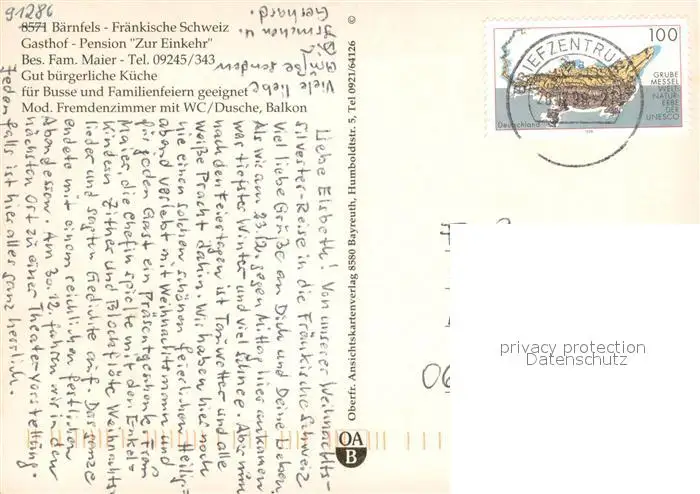 91286
8571 Bärnfels - Fränkische Schweiz
Gasthof - Pension "Zur Einkehr"
Bes. Fam. Maier - Tel. 09245/343
Gut bürgerliche Küche
für Busse und Familienfeiern geeignet
Mod. Fremdenzimmer mit WC/Dusche, Balkon
Liebe Elsbeth! Von unserer Weihnachts-
silvester-Reise in die Fränkische Schweiz
viel liebe Grüße an Dich und Deine Lieben.
Als wir am 23.12. gegen Mittag hier ankamen
war tiefster Winter und viel Schnee. Aber nun
nach den Feiertagen ist Tauwetter und alle
weiße Pracht dahin. Wir haben hier noch
nie einen solchen schönen feierlichen Heilig-
abend verlebt mit Weihnachtsmann und
für jeden Gast ein Präsentgeschenk. Frau
Maier, die Chefin spielte mit den Enkel-
Kindern Zither und Blockflöte Weihnachts-
lieder und sagten Gedichte auf. Das ganze
endete mit einem reichlichen festlichen
Abendessen. Am 30.12. fahren wir in den
nächsten Ort zu einer Theater-Vorstellung.
Jedenfalls ist hier alles ganz herrlich.
Viele liebe
Grüße senden
Dir
Irmchen u.
Gerhard.
© Oberfr. Ansichtskartenverlag 8580 Bayreuth, Humboldtstr. 5, Tel 0921/64126
OA
B
BRIEFZENTRUM
100
GRUBE
MESSEL
WELT-
NATUR-
ERBE
DER
UNESCO
Deutschland
1998
06
privacy protection
Datenschutz